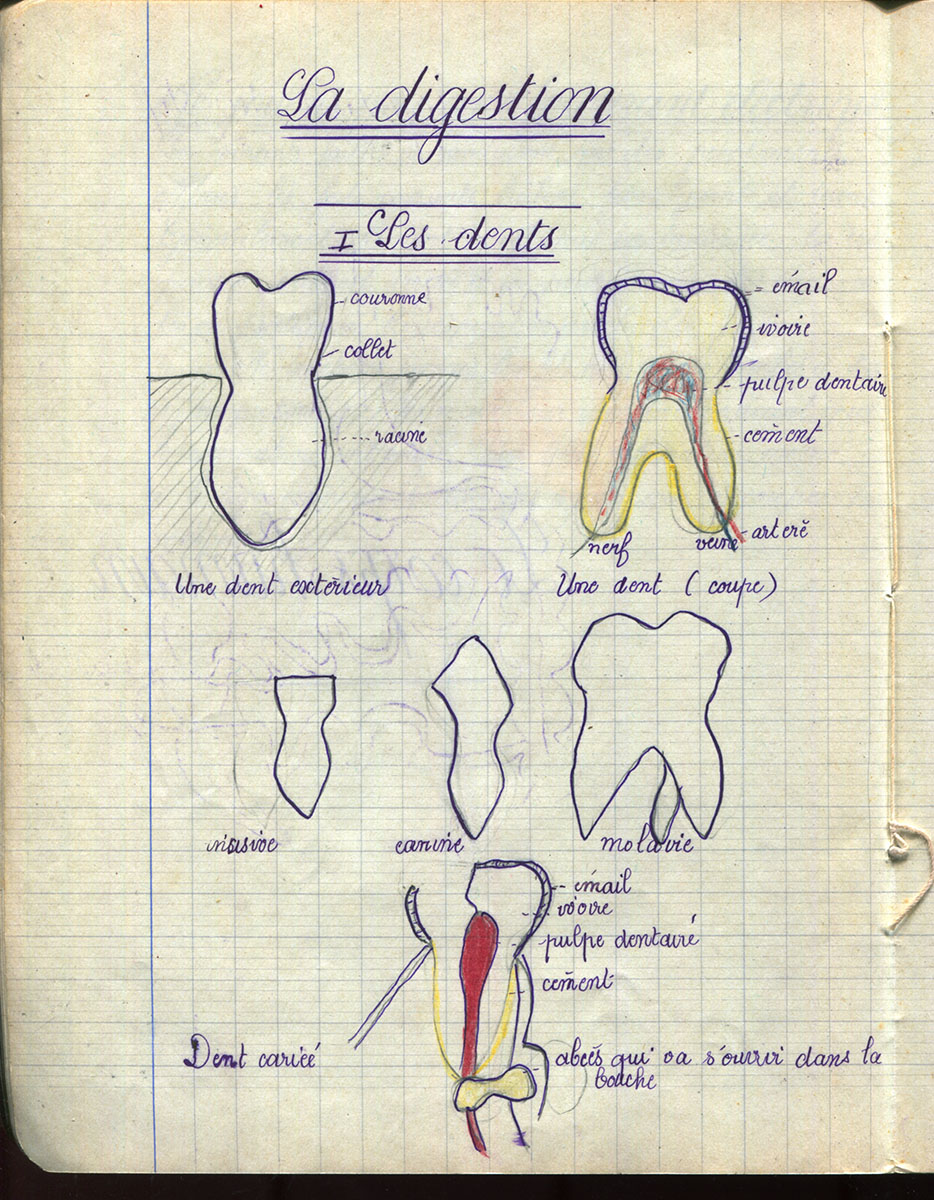 La digestion
I Les dents
couronne
collet
racine
émail
ivoire
pulpe dentaire
cement
artere
nerf
veine
Une dent extérieur
Une dent ( coupe )
insisive
canine
molavie
émail
ivoire
pulpe dentairé
cement
Dent cariéé
abcés qui va s'ouvrir dans la
bouche